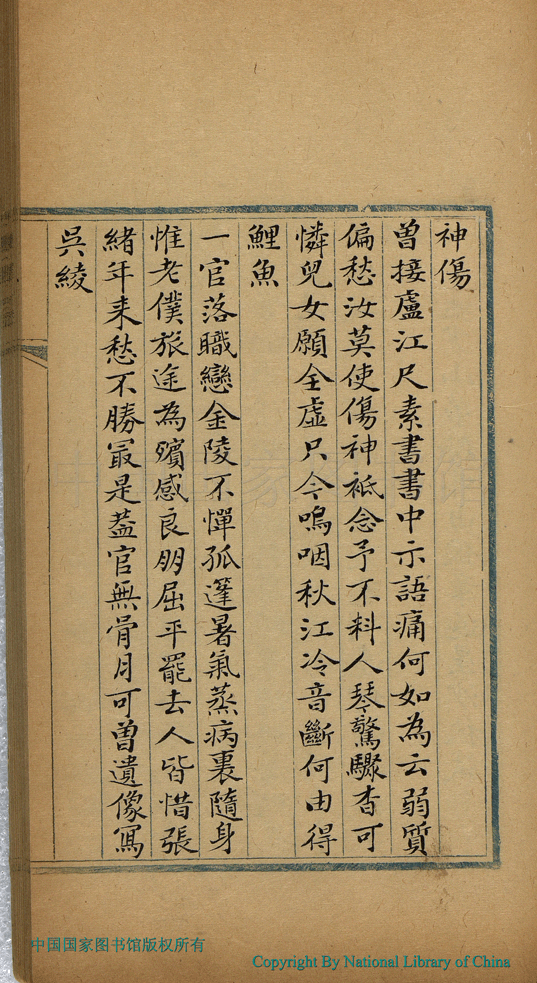 神傷
曽接盧江尺素書書中示語痛何如為云弱質
偏愁汝莫使傷神祗念予不料人琴驚驟杳可
憐兒女願全虛只今嗚咽秋江冷音斷何由得
鯉魚
一官落職戀金陵不憚孤篷暑氣蒸病裏隨身
惟老僕旅途為殯感良朋屈平罷去人皆惜張
緒年来愁不勝冣是葢官無骨月可曽遺像寫
吳綾
中国国家图书馆版权所有
Copyright By National Library of China